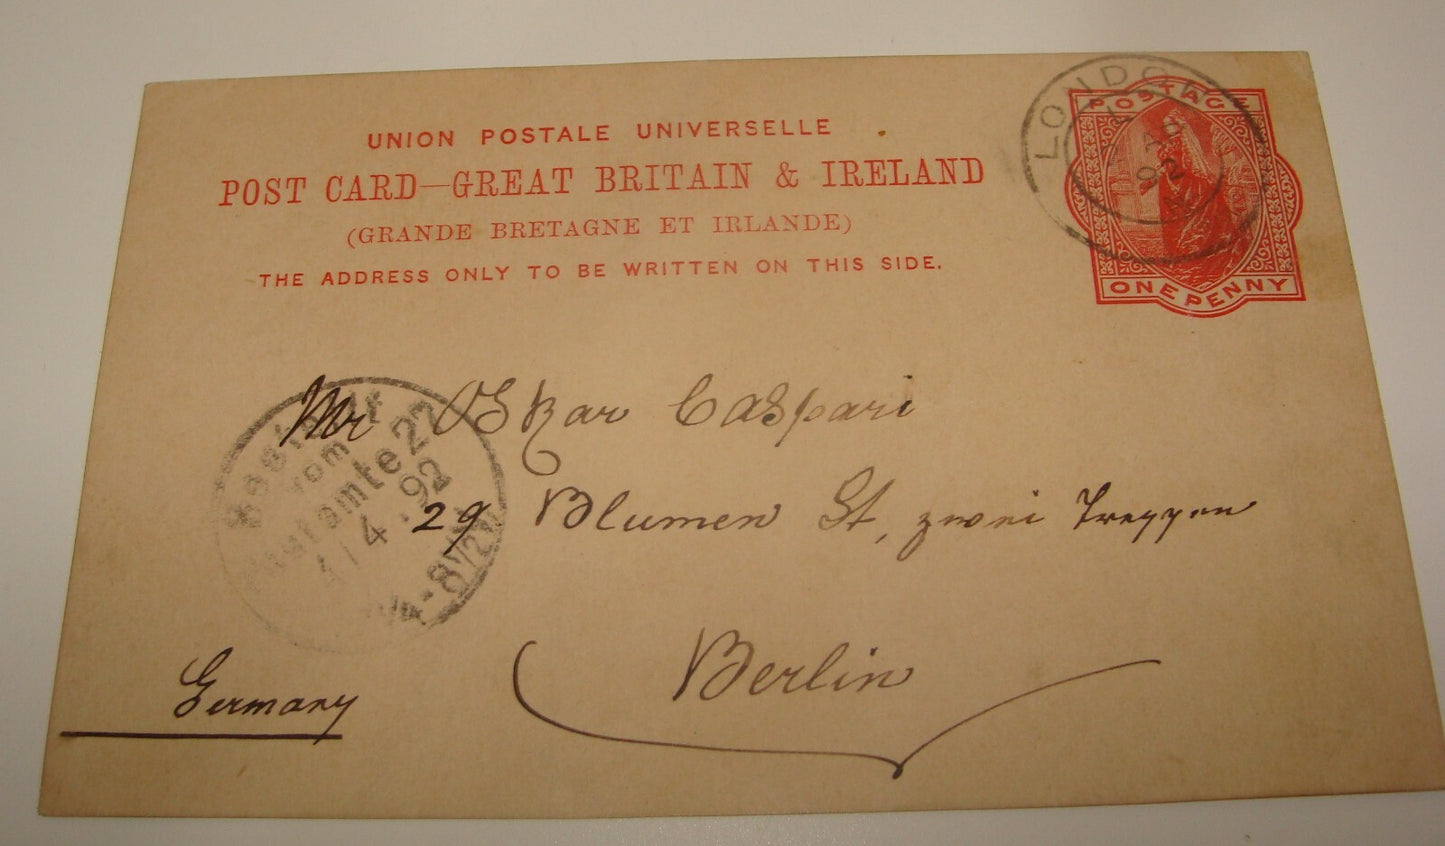 UNION POSTALE UNIVERSELLE
POST CARD—GREAT BRITAIN & IRELAND
(GRANDE BRETAGNE ET IRLANDE)
THE ADDRESS ONLY TO BE WRITTEN ON THIS SIDE.
POSTAGE
ONE PENNY
LONDON
92
Mr Oskar Caspari
29 Blumen St, zwei Treppen
Berlin
Germany
Bestellt
vom
Postamte 22
4 . 92
8½